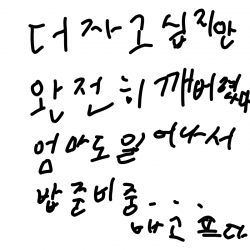 더 자고 싶지만
완전히 깨버렸다
엄마도 일어나서
밥 준비 중...
배고프다